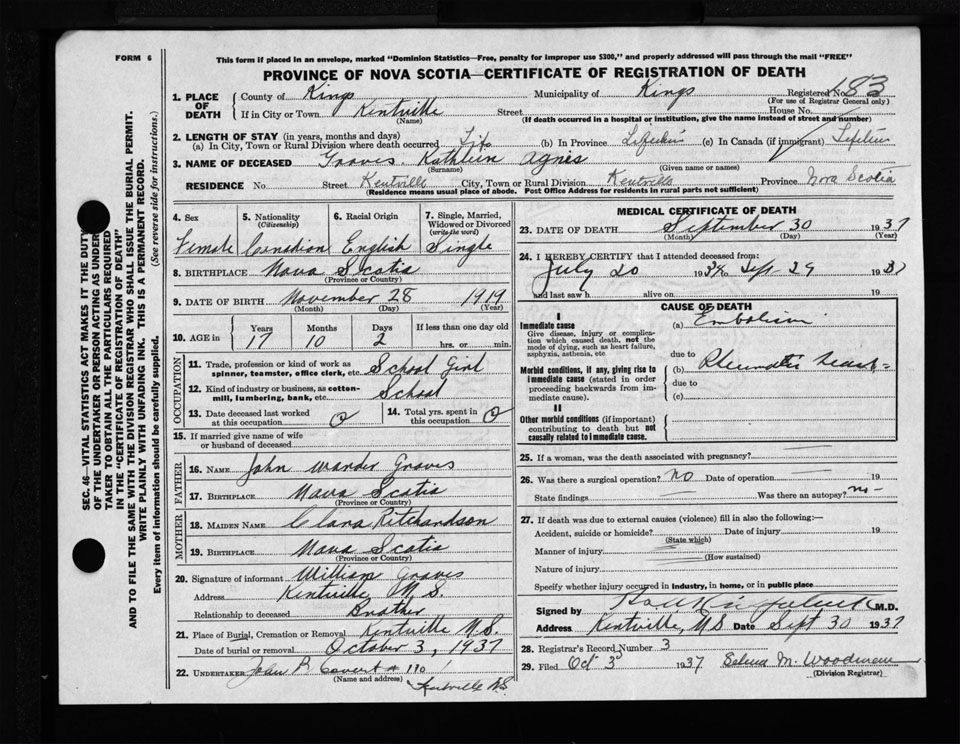 FORM 6
This form if placed in an envelope, marked "Dominion Statistics—Free, penalty for improper use $300," and properly addressed will pass through the mail "FREE"
PROVINCE OF NOVA SCOTIA—CERTIFICATE OF REGISTRATION OF DEATH
1. PLACE OF DEATH
County of Kings Municipality of Kings Registered No. 183
(For use of Registrar General only)
If in City or Town Kentville Street House No.
(Name) (If death occurred in a hospital or institution, give the name instead of street and number)
2. LENGTH OF STAY (in years, months and days)
(a) In City, Town or Rural Division where death occurred Life (b) In Province (c) In Canada (if immigrant)
3. NAME OF DECEASED Graves Kathleen Agnes
(Surname) (Given name or names)
RESIDENCE No. Street Kentville City, Town or Rural Division Kentville Province Nova Scotia
(Residence means usual place of abode. Post Office Address for residents in rural parts not sufficient)
SEC. 46—VITAL STATISTICS ACT MAKES IT THE DUTY
OF THE UNDERTAKER OR PERSON ACTING AS UNDER
TAKER TO OBTAIN ALL THE PARTICULARS REQUIRED
IN THE "CERTIFICATE OF REGISTRATION OF DEATH"
AND TO FILE THE SAME WITH THE DIVISION REGISTRAR WHO SHALL ISSUE THE BURIAL PERMIT.
WRITE PLAINLY WITH UNFADING INK. THIS IS A PERMANENT RECORD.
Every item of information should be carefully supplied. (See reverse side for instructions.)
4. Sex 5. Nationality (Citizenship) 6. Racial Origin 7. Single, Married, Widowed or Divorced (write the word)
Female Canadian English Single
8. BIRTHPLACE Nova Scotia
(Province or Country)
9. DATE OF BIRTH November 28 1919
(Month) (Day) (Year)
10. AGE in Years Months Days If less than one day old
17 10 2 hrs. or min.
OCCUPATION
11. Trade, profession or kind of work as spinner, teamster, office clerk, etc. School Girl
12. Kind of industry or business, as cotton-mill, lumbering, bank, etc. School
13. Date deceased last worked at this occupation 0 14. Total yrs. spent in this occupation 0
15. If married give name of wife or husband of deceased
FATHER
16. NAME John Graves
17. BIRTHPLACE Nova Scotia
(Province or Country)
MOTHER
18. MAIDEN NAME Clara Ritchardson
19. BIRTHPLACE Nova Scotia
(Province or Country)
20. Signature of informant William Graves
Address Kentville N.S.
Relationship to deceased Brother
21. Place of Burial, Cremation or Removal Kentville N.S.
Date of burial or removal October 3, 1937
22. UNDERTAKER John R Covert
(Name and address) Kentville NS
MEDICAL CERTIFICATE OF DEATH
23. DATE OF DEATH September 30 1937
(Month) (Day) (Year)
24. I HEREBY CERTIFY that I attended deceased from:
July 20 193 to Sept 29 1937
and last saw h alive on 19
CAUSE OF DEATH
I
Immediate cause
Give disease, injury or complication which caused death, not the mode of dying, such as heart failure, asphyxia, asthenia, etc
(a) Embolism
due to
Morbid conditions, if any, giving rise to immediate cause (stated in order proceeding backwards from immediate cause).
(b) Rheumatic heart
due to
(c)
II
Other morbid conditions (if important) contributing to death but not causally related to immediate cause.
25. If a woman, was the death associated with pregnancy?
26. Was there a surgical operation? No Date of operation 19
State findings Was there an autopsy? no
27. If death was due to external causes (violence) fill in also the following:—
Accident, suicide or homicide? Date of injury 19
(State which)
Manner of injury
(How sustained)
Nature of injury
Specify whether injury occurred in industry, in home, or in public place
Signed by M.D.
Address Kentville, NS Date Sept 30 1937
28. Registrar's Record Number 3
29. Filed Oct 3 1937 Selena M. Woodman
(Division Registrar)